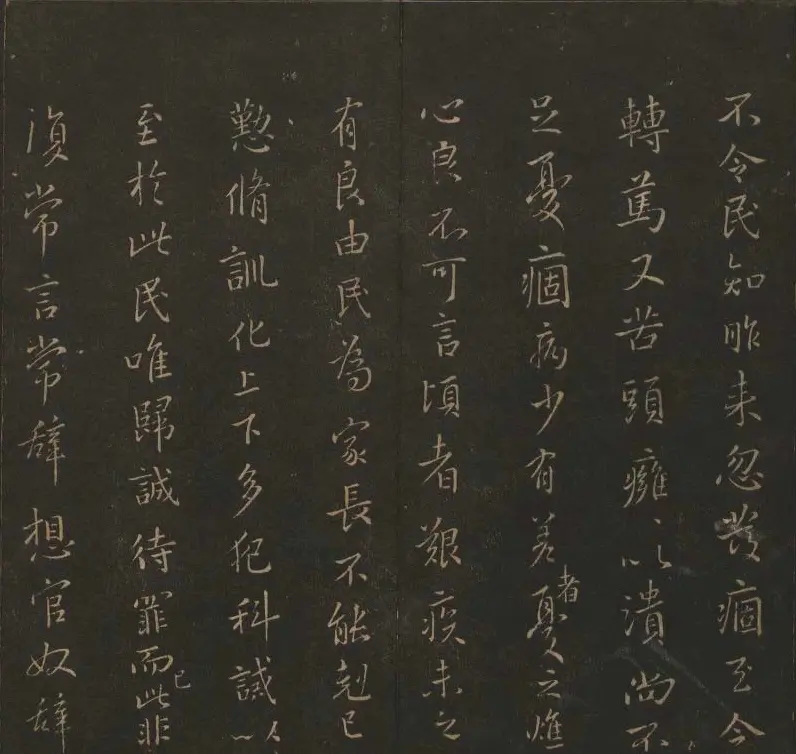 不令民知昨来忽發痼至今
轉篤又苦頭癰〻以潰尚不
足憂痼病少有差者憂之燋
心良不可言頃者艱疾未之
有良由民為家長不能剋己
懃脩訓化上下多犯科誡以
至於此民唯歸誠待罪而已此非
復常言常辭想官奴辭